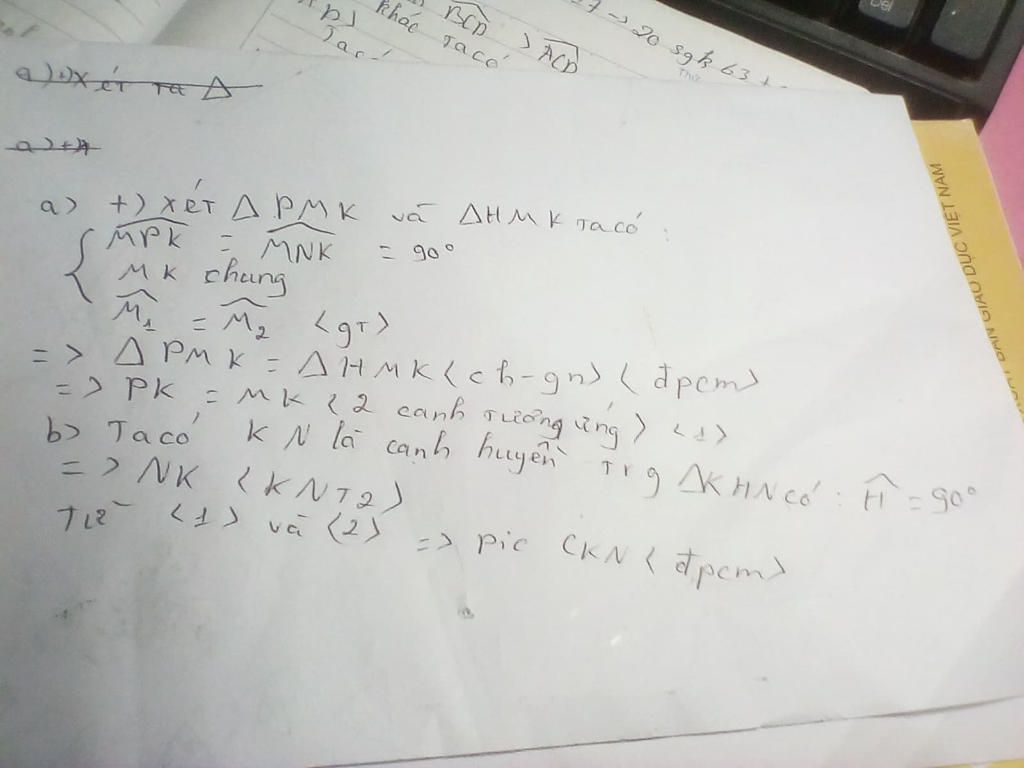 BCD > ACD
khác Ta có
Ta có
a) +) Xét ta Δ
a) +)
a) +) xét Δ PMK và ΔHMK ta có :
MPK = MNK = 90°
MK chung
M1 = M2 <gT>
=> Δ PMK = ΔHMK <ch-gn> <đpcm>
=> PK = MK <2 cạnh tương ứng> <1>
b) Ta có KN là cạnh huyền Trg ΔKHN có : H = 90°
=> NK <KNT2>
Từ <1> và <2> => PIC CKN <đpcm>
BẢN GIÁO DỤC VIỆT NAM